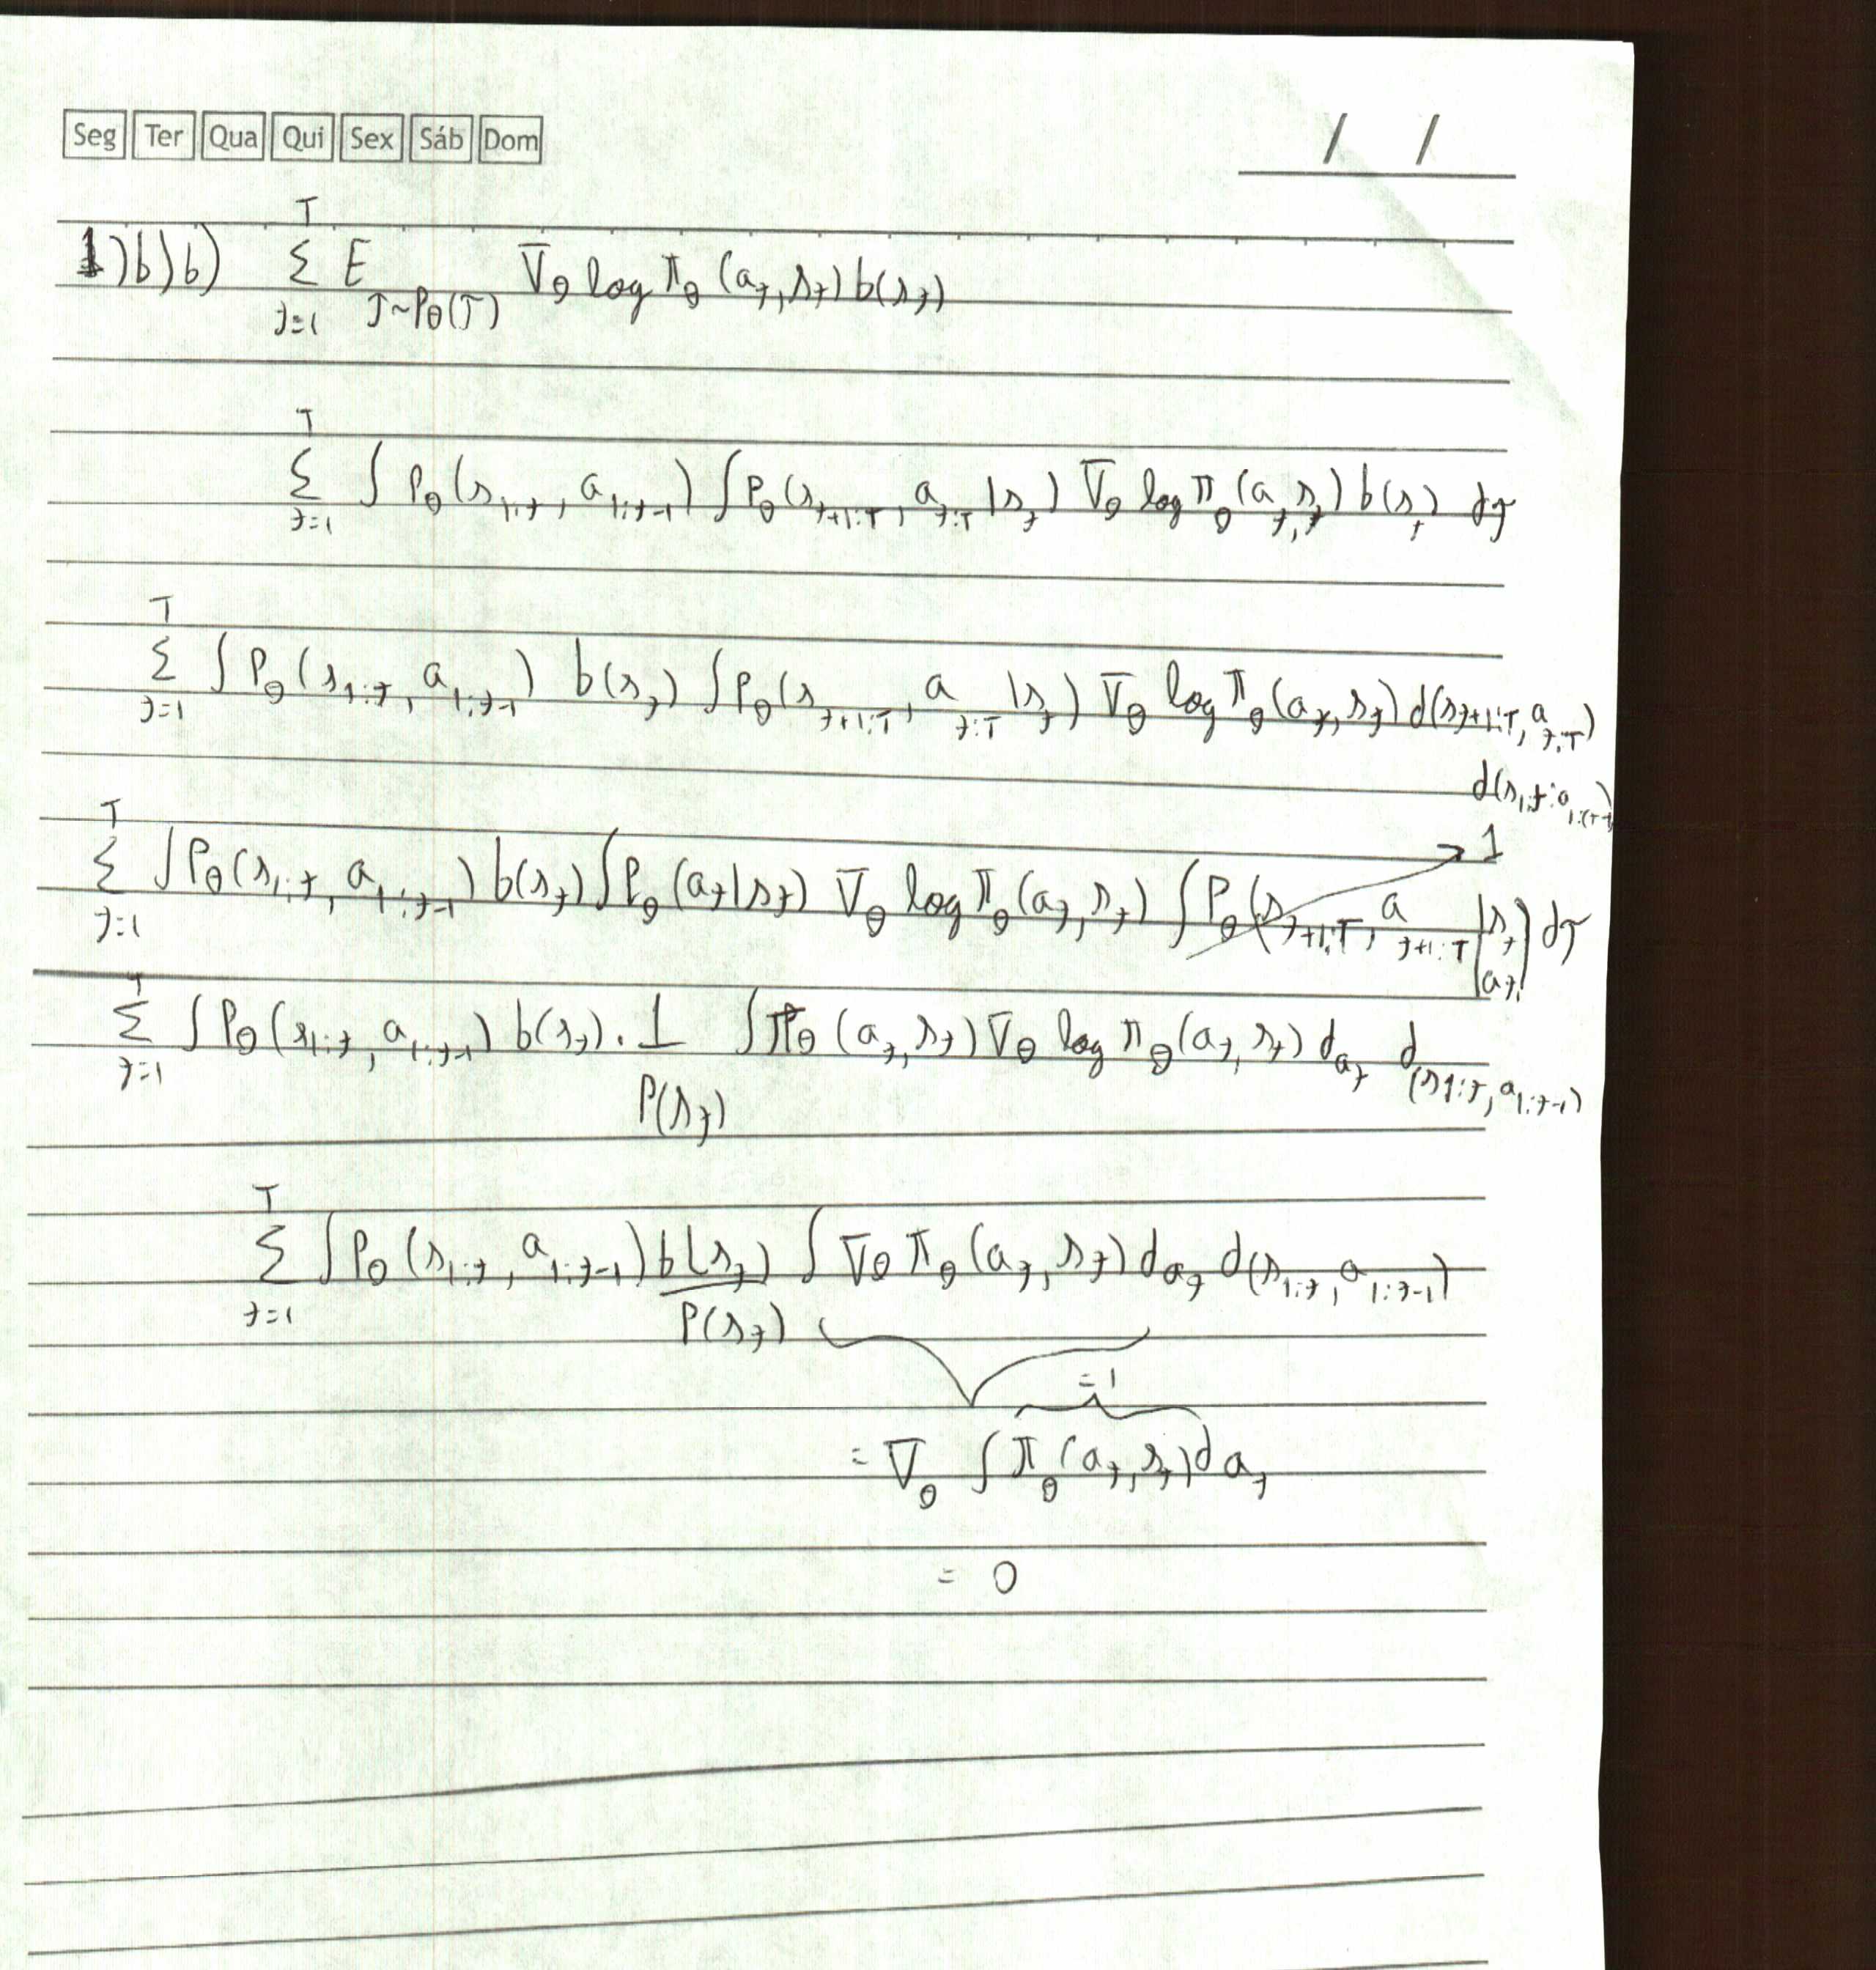 Seg Ter Qua Qui Sex Sáb Dom
/ /
1)b)b) Σ_{t=1}^{T} E_{τ~P_θ(τ)} ∇_θ log π_θ (a_t, s_t) b(s_t)
Σ_{t=1}^{T} ∫ P_θ(s_{1:t}, a_{1:t-1}) ∫ P_θ(s_{t+1:T}, a_{t:T} | s_t) ∇_θ log π_θ (a_t, s_t) b(s_t) dτ
Σ_{t=1}^{T} ∫ P_θ(s_{1:t}, a_{1:t-1}) b(s_t) ∫ P_θ(s_{t+1:T}, a_{t:T} | s_t) ∇_θ log π_θ(a_t, s_t) d(s_{t+1:T}, a_{t:T})
1
Σ_{t=1}^{T} ∫ P_θ(s_{1:t}, a_{1:t-1}) b(s_t) ∫ P_θ(a_t | s_t) ∇_θ log π_θ(a_t, s_t) ∫ P_θ(s_{t+1:T}, a_{t+1:T} | s_t, a_t) dτ
Σ_{t=1}^{T} ∫ P_θ(s_{1:t}, a_{1:t-1}) b(s_t) . 1/P(s_t) ∫ π_θ (a_t, s_t) ∇_θ log π_θ(a_t, s_t) d_{a_t} d_{(s_{1:t}, a_{1:t-1})}
Σ_{t=1}^{T} ∫ P_θ(s_{1:t}, a_{1:t-1}) b(s_t)/P(s_t) ∫ ∇_θ π_θ(a_t, s_t) d_{a_t} d_{(s_{1:t}, a_{1:t-1})}
=1
= ∇_θ ∫ π_θ(a_t, s_t) d a_t
= 0